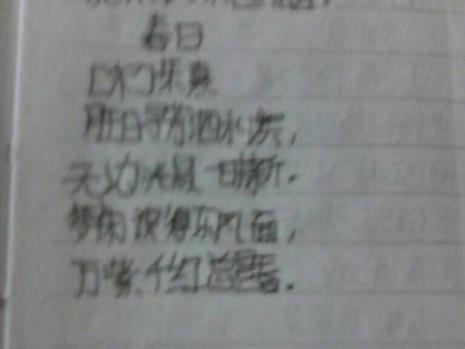 春日
[宋]朱熹
胜日寻芳泗水滨，
无边光景一时新。
等闲识得东风面，
万紫千红总是春。